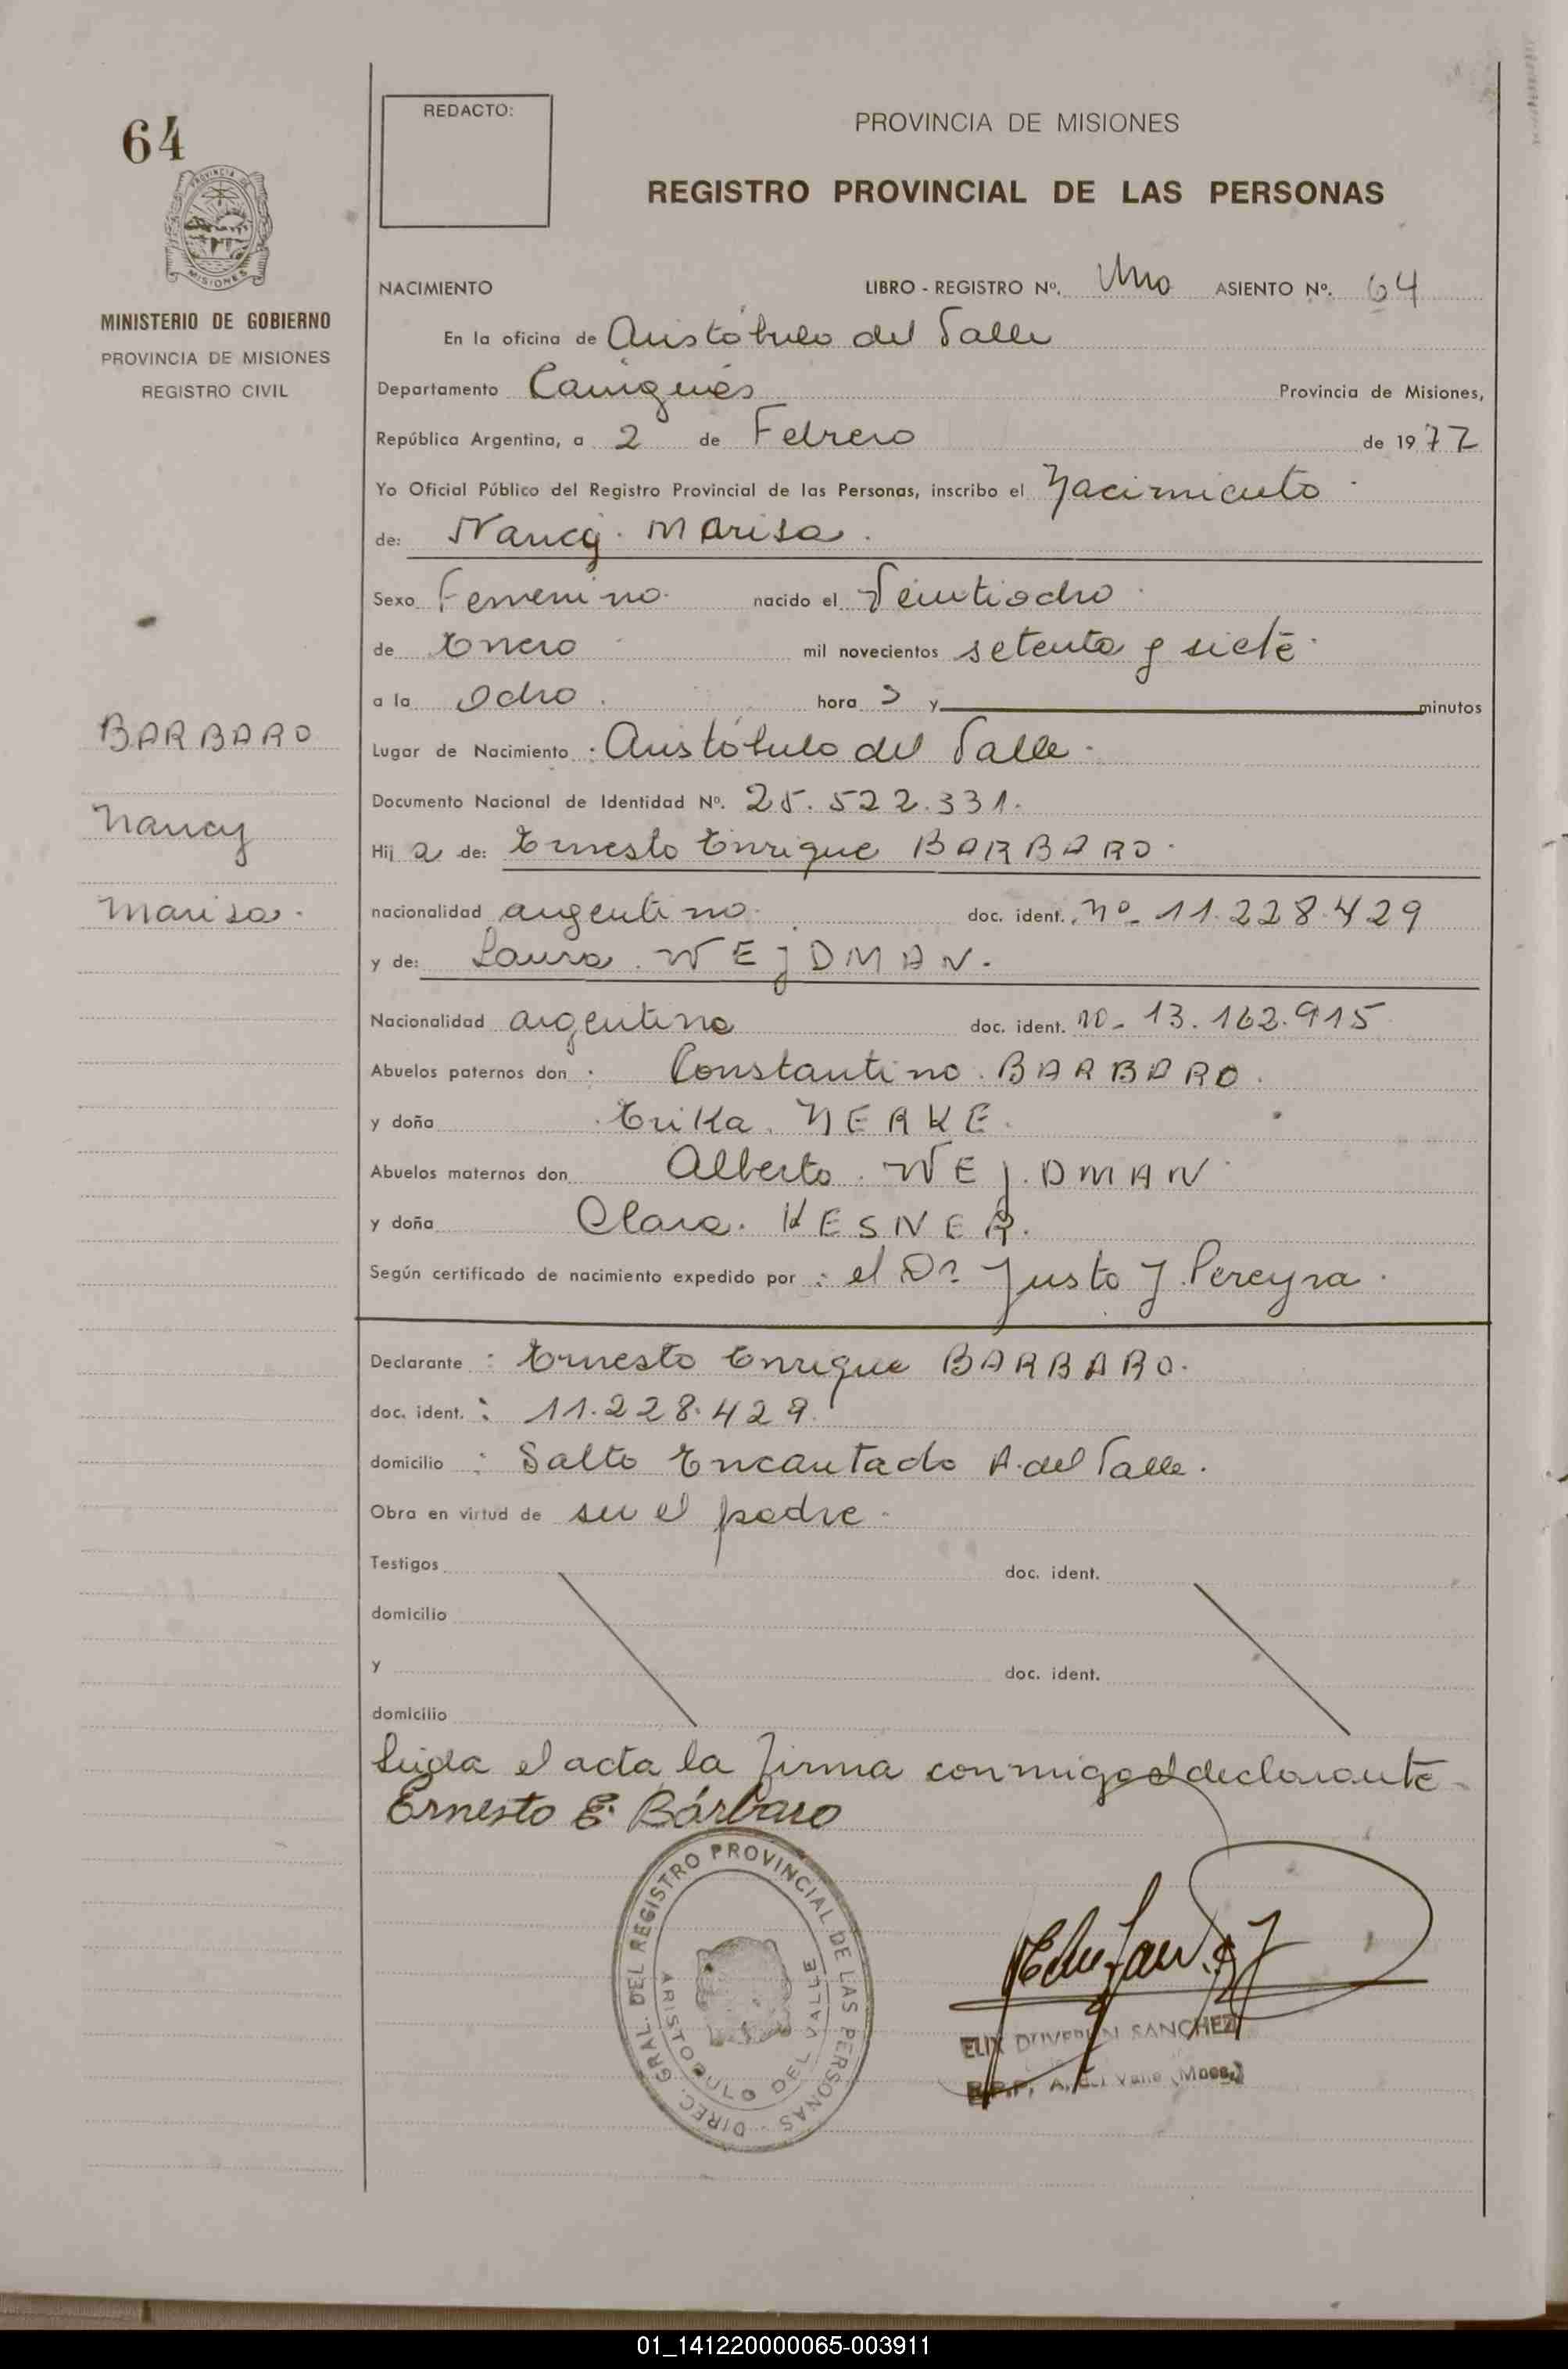 64
REDACTO:
PROVINCIA DE MISIONES
REGISTRO PROVINCIAL DE LAS PERSONAS
PROVINCIA DE
MISIONES
MINISTERIO DE GOBIERNO
PROVINCIA DE MISIONES
REGISTRO CIVIL
NACIMIENTO LIBRO - REGISTRO Nº. Uno ASIENTO Nº. 64
En la oficina de Aristóbulo del Valle
Departamento Cainguás Provincia de Misiones,
República Argentina, a 2 de Febrero de 1977
Yo Oficial Público del Registro Provincial de las Personas, inscribo el Nacimiento
de: Nancy Marisa.
Sexo Femenino nacido el Veintiocho
de Enero mil novecientos setenta y siete
a la Ocho hora s y minutos
Lugar de Nacimiento : Aristóbulo del Valle
Documento Nacional de Identidad Nº. 25.522.331.
Hij a de: Ernesto Enrique BARBARO
nacionalidad argentino doc. ident. Nº 11.228.429
y de: Laura WEJDMAN.
Nacionalidad argentina doc. ident. no- 13.162.915
Abuelos paternos don Constantino BARBARO.
y doña Erika NERKE
Abuelos maternos don Alberto WEJDMAN
y doña Clara KESNER.
Según certificado de nacimiento expedido por : el Dr Justo J. Pereyra
BARBARO
Nancy
Marisa
Declarante : Ernesto Enrique BARBARO.
doc. ident. : 11.228.429.
domicilio : Salto Encantado A. del Valle.
Obra en virtud de ser el padre
Testigos doc. ident.
domicilio
y doc. ident.
domicilio
Leida el acta la firma conmigo el declarante
Ernesto E. Bárbaro
DIREC. GRAL. DEL REGISTRO PROVINCIAL DE LAS PERSONAS -
ARISTOBULO DEL VALLE
ELIX SANCHEZ
R.P.P. A. del Valle (Mnes.)
01_141220000065-003911